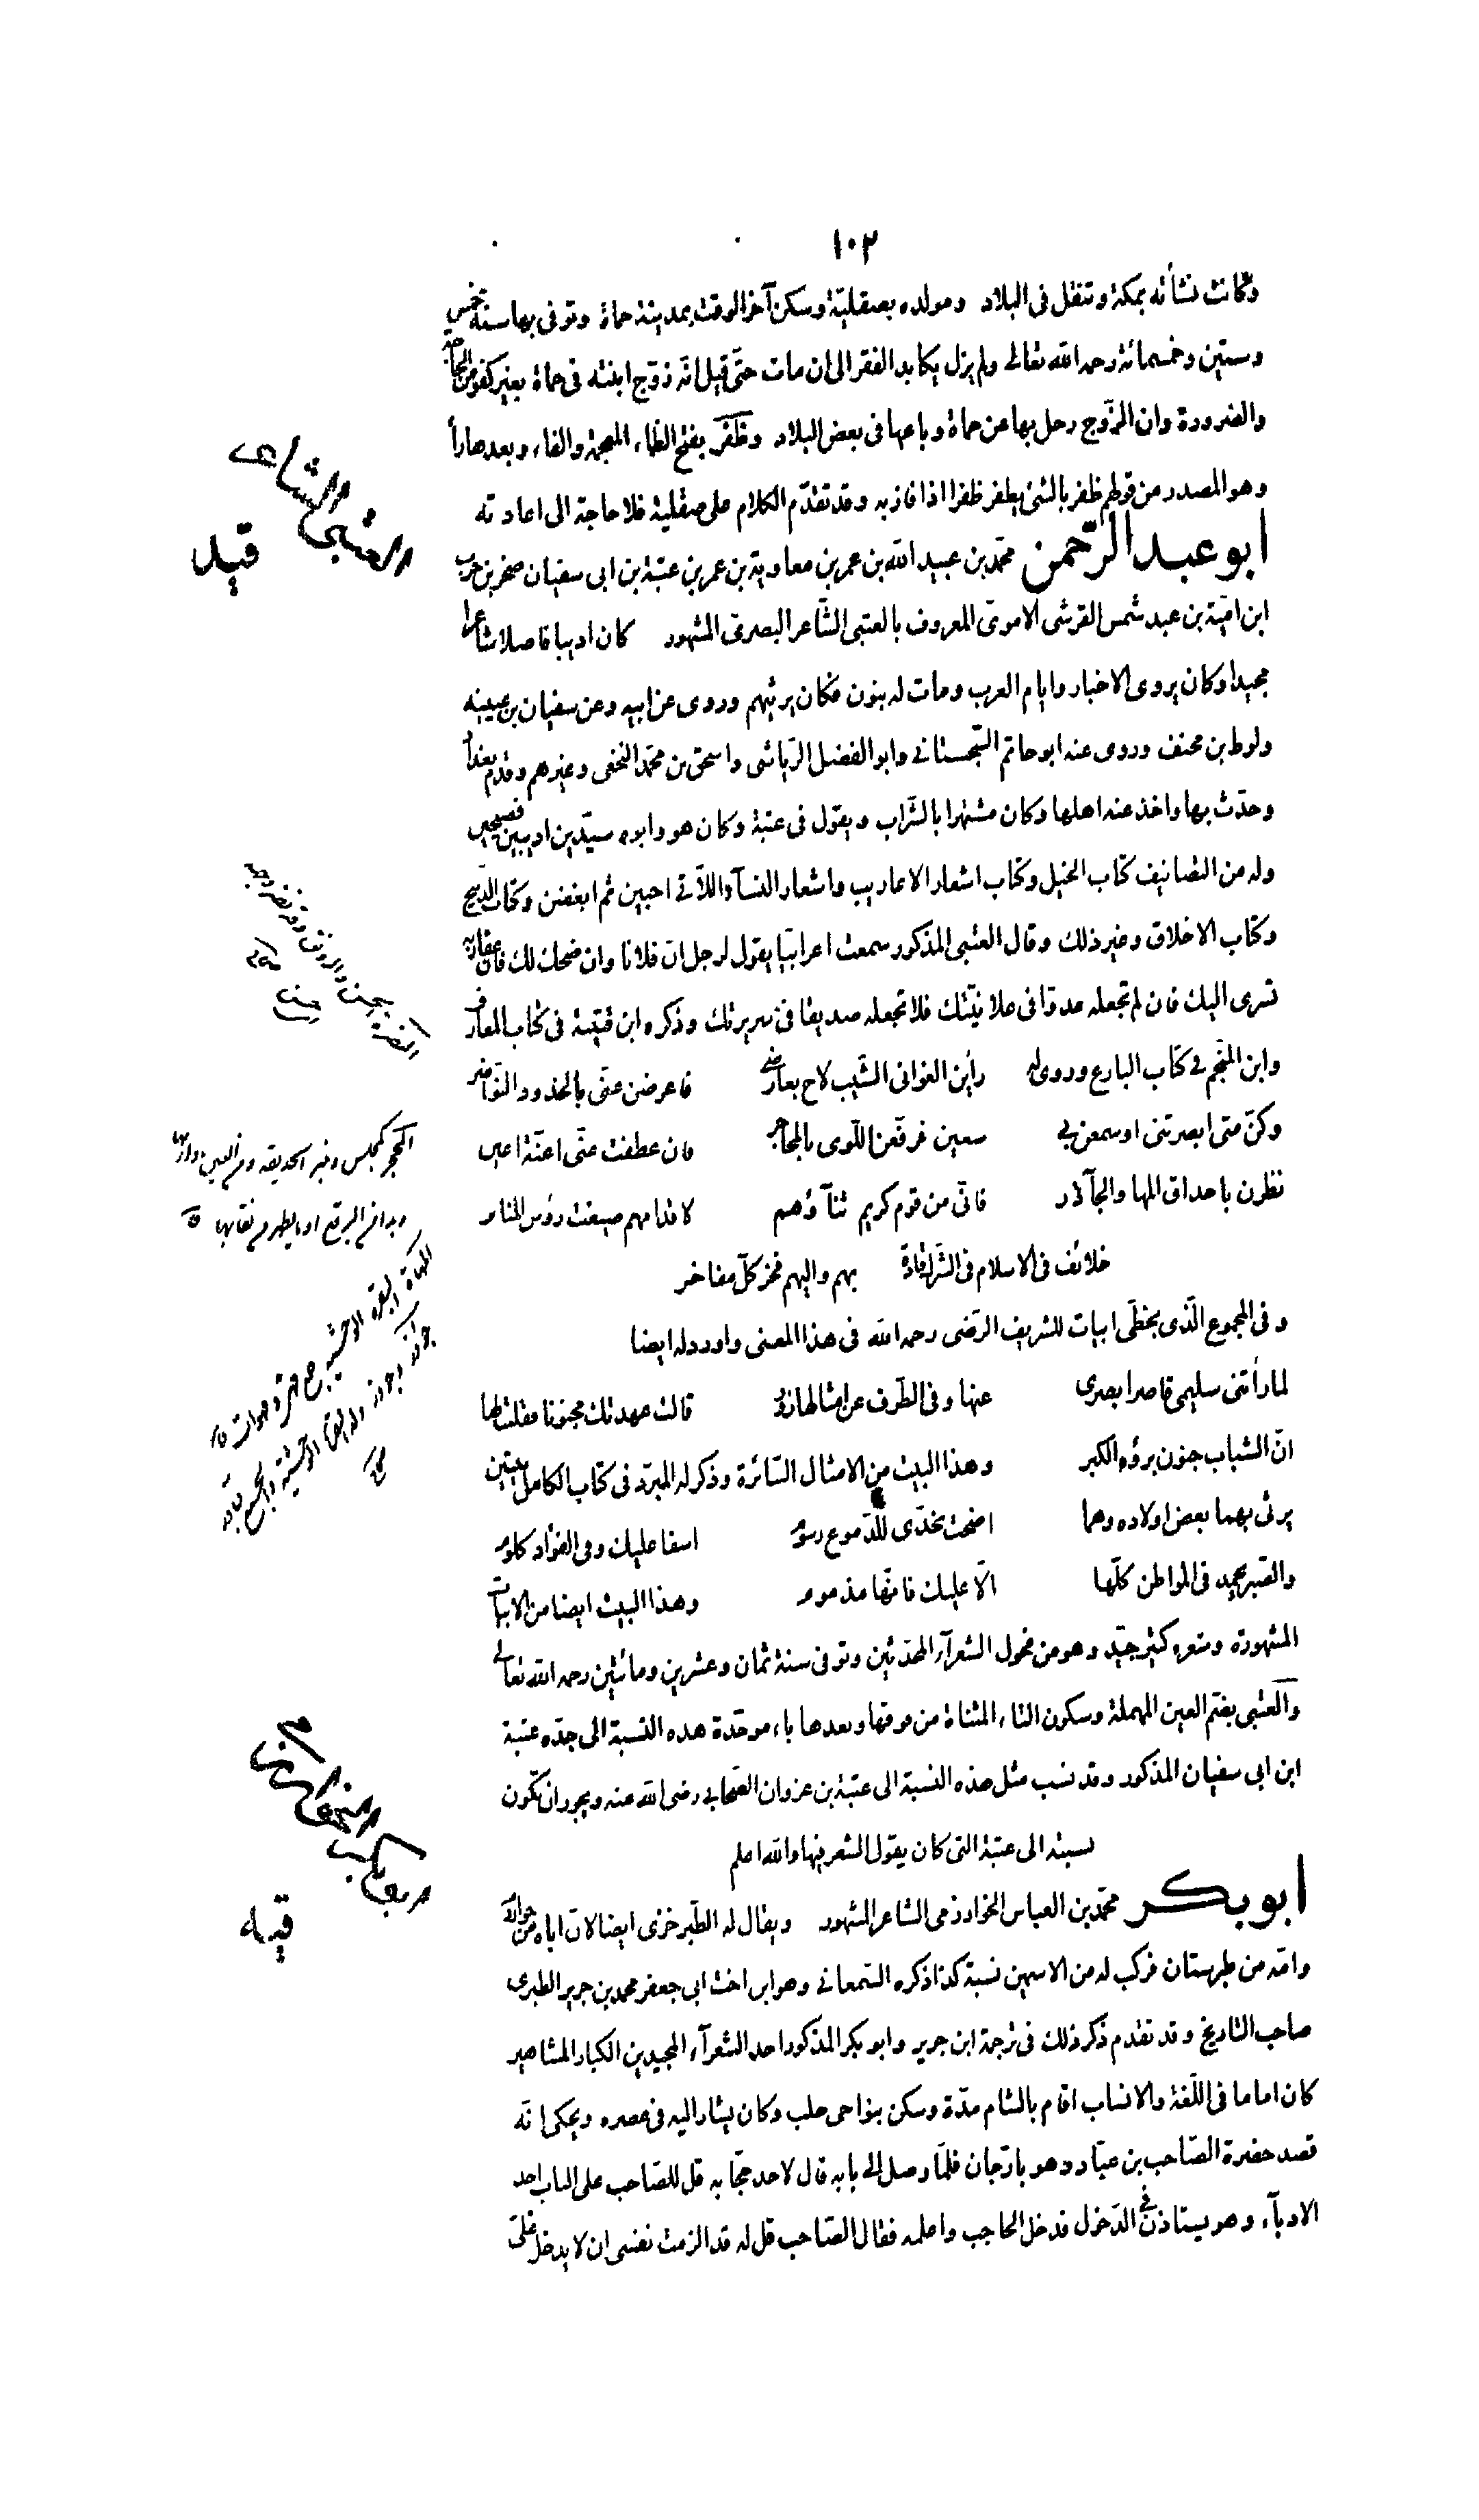 ١٠٢
وكانت نشأته بمكة وتنقل فى البلاد ومولده بصقليّة وسكن آخر الوقت بمدينة حماة وتوفى بها سنة خمس
وستين وخمسمائة رحمه الله تعالى ولم يزل يكابد الفقر الى ان مات حتّى قيل انّه زوّج ابنته فى حماة بغير كفو من الحاجة
والضرورة وان الزّوج رحل بها عن حماة وباعها فى بعض البلاد وظَفَر بفتح الظاء المعجمة والفاء وبعدها راءً
وهو المصدر من قولهم ظفر بالشئ يظفر ظفرا اذا فاز به وقد تقدّم الكلام على صقلية فلا حاجة الى اعادته
ابو عبد الرّحمن محمّد بن عبيد الله بن عمر بن معاوية بن عمر بن عتبة بن ابى سفيان صخر بن حرب
ابن اميّة بن عبد شمس القرشى الاموىّ المعروف بالعتبى الشّاعر البصرىّ المشهور كان اديبا فاضلا شاعرا
مجيدا وكان يروى الاخبار وايام العرب ومات له بنون فكان يرثيهم وروى عن ابيه وعن سفيان بن عيينه
ولوط بن مخنف وروى عنه ابو حاتم السّجستانى وابو الفضل الرّياشى واسحق بن محمّد النخعى وغيرهم وقدم بغداد
وحدّث بها واخذ عنه اهلها وكان مشتهرا بالشّراب ويقول فى عتبة وكان هو وابوه سيّدين اديبين فصيحين
وله من التصانيف كتاب الخيل وكتاب اشعار الاعاريب واشعار النسآء اللاّتى احببن ثم ابغضن وكتاب الذّبيح
وكتاب الاخلاق وغير ذلك وقال العتبى المذكور سمعت اعرابيّا يقول لرجل انّ فلانا وان ضحك لك فان عقاربه
تسرى اليك فان لم تجعله عدوّا فى علانيّتك فلا تجعله صديقا فى سريرتك وذكره ابن قتيبة فى كتاب المعارف
وابن المنجّم فى كتاب البارع وروى له رأين الغوانى الشّيب لاح بعارضى فاعرضن عنّى بالخدود النّواضر
وكنّ متى ابصرتنى او سمعن بى سعين فرقّعن اللّوى بالمحاجر فان عطفت عنّى اعنّة اعين
نظرن باحداق المها والجآذر فانّى من قوم كريم ثنآؤهم لاقدامهم صيغت رؤس المنابر
خلائف فى الاسلام فى الشّرك قادة بهم واليهم فخر كلّ مفاخر
وفى المجموع الّذى بخطّى ابيات للشريف الرّضى رحمه الله فى هذا المعنى واورد له ايضا
لما رأتنى سليمى قاصرا بصرى عنها وفى الطّرف عن امثالها زور قالت عهدتك مجنونا فقلت لها
انّ الشباب جنون برؤه الكبر وهذا البيت من الامثال السّائرة وذكر له المبرّد فى كتاب الكامل بيتين
يرثى بهما بعض اولاده وهما اضحت بخدّى للدّموع رسوم اسفا عليك وفى الفؤاد كلوم
والصّبر يحمد فى المواطن كلّها الاّ عليك فانّها مذموم وهذا البيت ايضا من الابيات
المشهورة وشعره كثير جيّد وهو من فحول الشعرآء المحدثين وتوفى سنة ثمان وعشرين ومائتين رحمه الله تعالى
والعتبى بضم العين المهملة وسكون التاء المثناة من فوقها وبعدها باء موحّدة هذه النسبة الى جدّه عتبة
ابن ابى سفيان المذكور وقد نسب مثل هذه النسبة الى عتبة بن غزوان الصّحابى رضى الله عنه ويجوز ان تكون
نسبته الى عتبة التى كان يقول الشعر فيها والله اعلم
ابو بكر محمّد بن العباس الخوارزمى الشاعر المشهور ويقال له الطّبرخزى ايضا لانّ اباه من خوارزم
وامّه من طبرستان فركب له من الاسمين نسبة كذا ذكره السّمعانى وهو ابن اخت ابى جعفر محمد بن جرير الطبرى
صاحب التاريخ وقد تقدم ذكر ذلك فى ترجمة ابن جرير وابو بكر المذكور احد الشعرآء المجيدين الكبار المشاهير
كان اماما فى اللّغة والانساب اقام بالشام مدّة وسكن بنواحى حلب وكان يشار اليه فى عصره ويحكى انّه
قصد حضرة الصّاحب بن عبّاد وهو بارّجان فلمّا وصل الى بابه قال لاحد حجّابه قل للصّاحب على الباب احد
الادبآء وهو يستاذن فى الدّخول فدخل الحاجب واعلمه فقال الصّاحب قل له قد الزمت نفسى ان لا يدخل علىّ
العتبى الشاعر
ابو بكر الخوارزمى